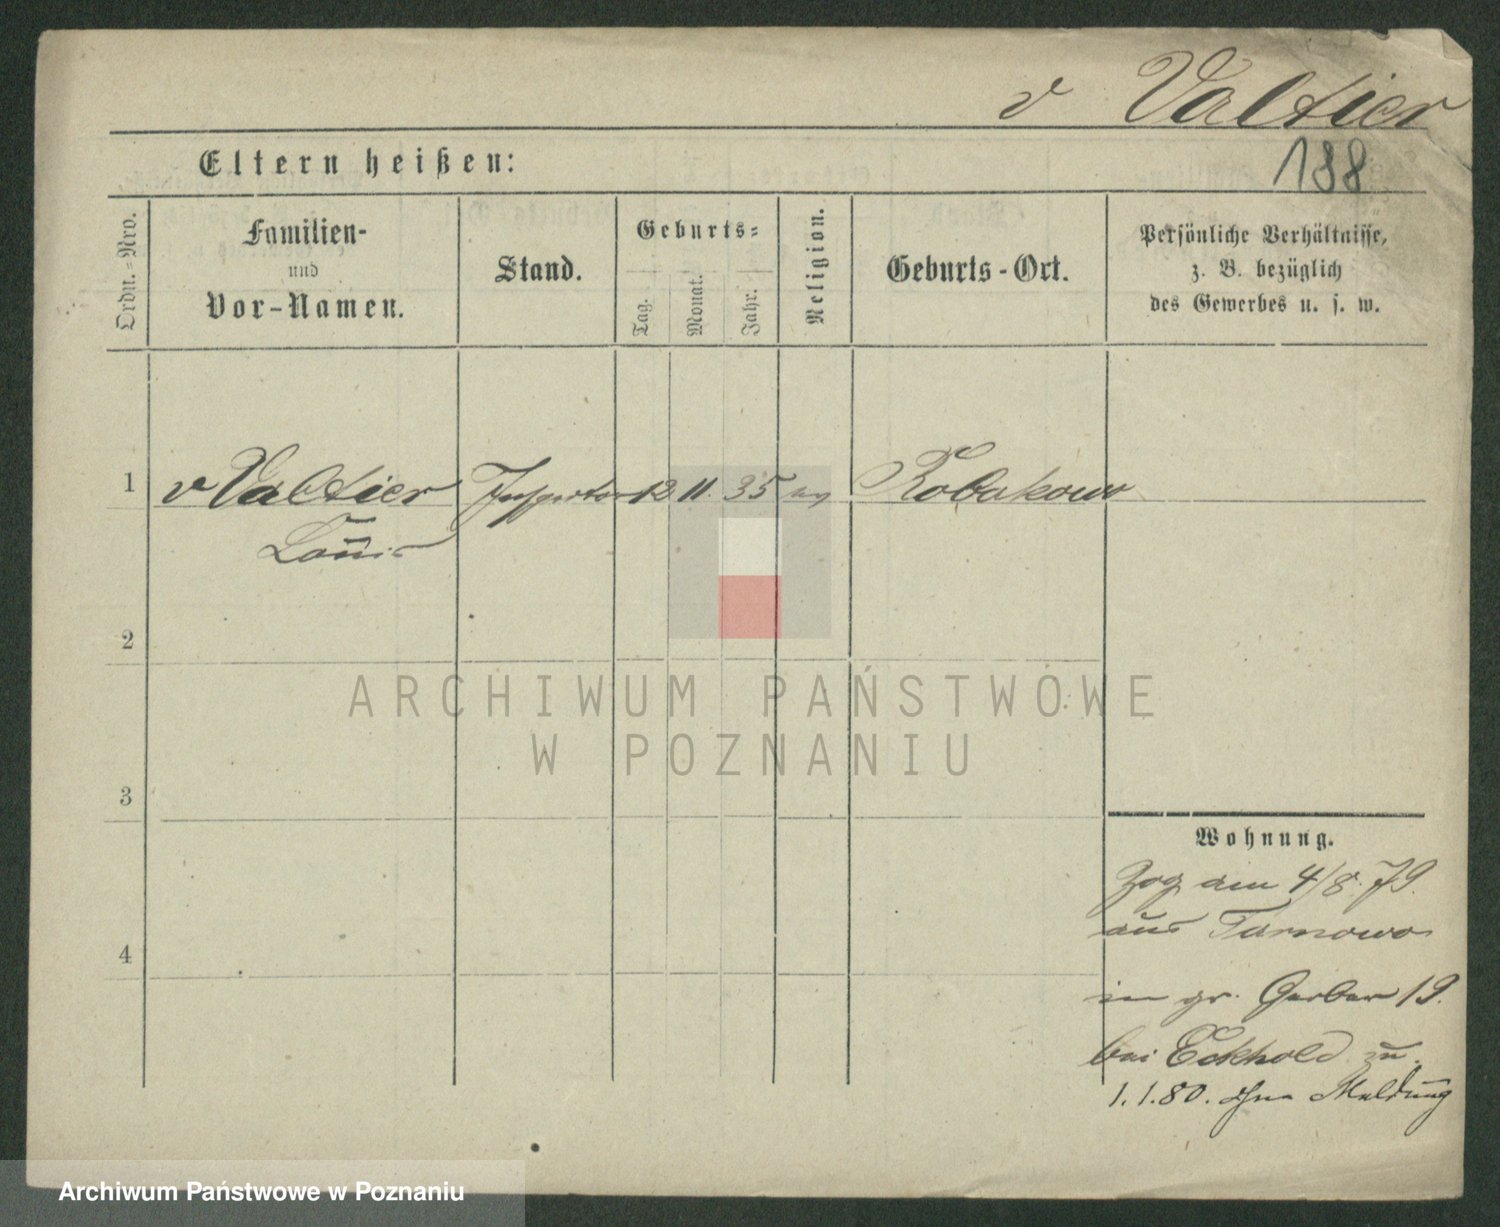 v Valtier
188
Eltern heißen:
Ordn.=Nro.
Familien-
und
Vor-Namen.
Stand.
Geburts=
Tag.
Monat.
Jahr.
Religion.
Geburts-Ort.
Persönliche Verhältnisse,
z. B. bezüglich
des Gewerbes u. s. w.
1 v Valtier Inspector 12 11. 35 ev Robakowo
Louis
2
ARCHIWUM PAŃSTWOWE
W POZNANIU
3
Wohnung.
Zog am 4/8. 79.
aus Tarnowo
4
in gr. Gerber 19.
bei Eckhold zu.
1. 1. 80. ohne Meldung
Archiwum Państwowe w Poznaniu